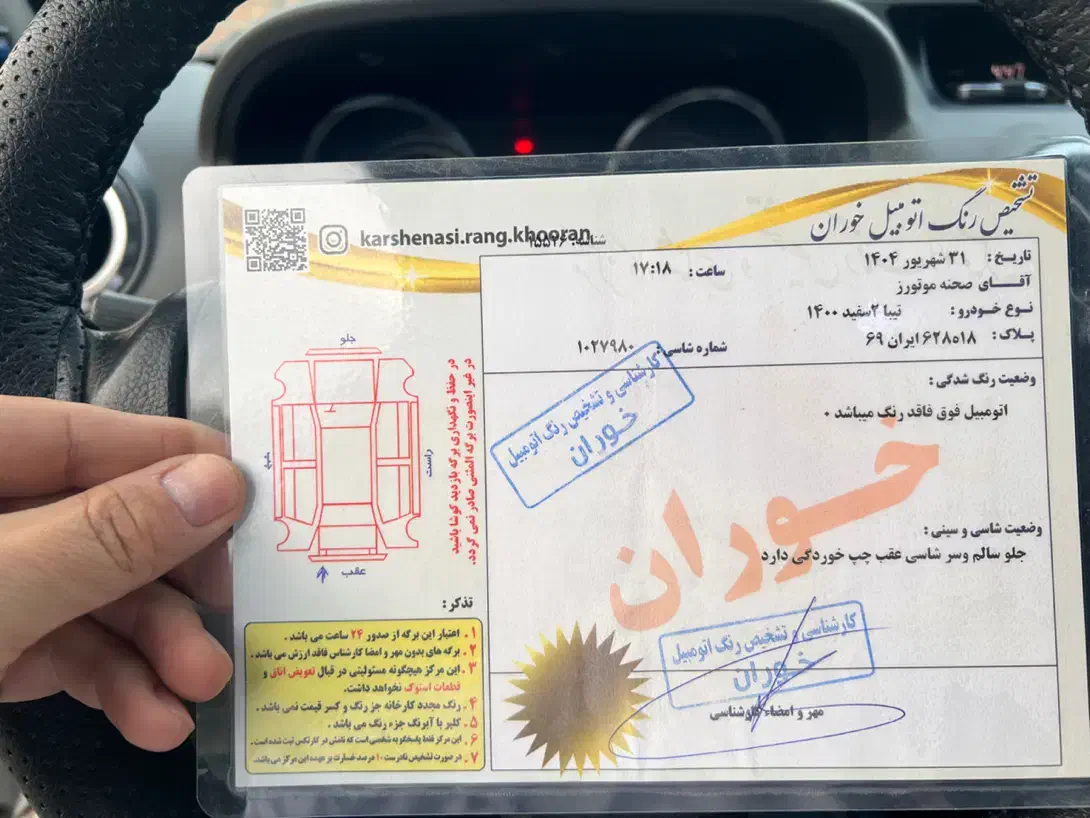 karshenasi.rang.khooran
تشخیص رنگ اتومبیل خوران
شناسه: ۱۵۵۲۶
تاریخ: ۳۱ شهریور ۱۴۰۴
ساعت: ۱۷:۱۸
آقـــای صحنه موتورز
نـوع خـودرو: تیبا ۲سفید ۱۴۰۰
پـلاک: ۶۲۸۵۱۸ ایران ۶۹
شماره شاسی: ۱۰۲۷۹۸۰
وضعیت رنگ شدگی:
اتومبیل فوق فاقد رنگ میباشد .
کارشناسی و تشخیص رنگ اتومبیل
خوران
خوران
وضعیت شاسی و سینی:
جلو سالم وسر شاسی عقب چپ خوردگی دارد
کارشناسی و تشخیص رنگ اتومبیل
خوران
مهر و امضاء کارشناسی
جلو
راست
عقب
در حفظ و نگهداری برگه بازدید کوشا باشید
در غیر اینصورت برگه المثنی صادر نمی گردد.
تذکر:
۱. اعتبار این برگه از صدور ۲۴ ساعت می باشد.
۲. برگه های بدون مهر و امضا کارشناس فاقد ارزش می باشد.
۳. این مرکز هیچگونه مسئولیتی در قبال تعویض اتاق و
قطعات استوک نخواهد داشت.
۴. رنگ مجدد کارخانه جز رنگ و کسر قیمت نمی باشد.
۵. کلیر با آبرنگ جزء رنگ می باشد.
۶. این مرکز فقط پاسخگو به شخصی است که نامش در کارتکس ثبت شده است.
۷. در صورت تشخیص نادرست ۱۰ درصد خسارت بر عهده این مرکز می باشد.